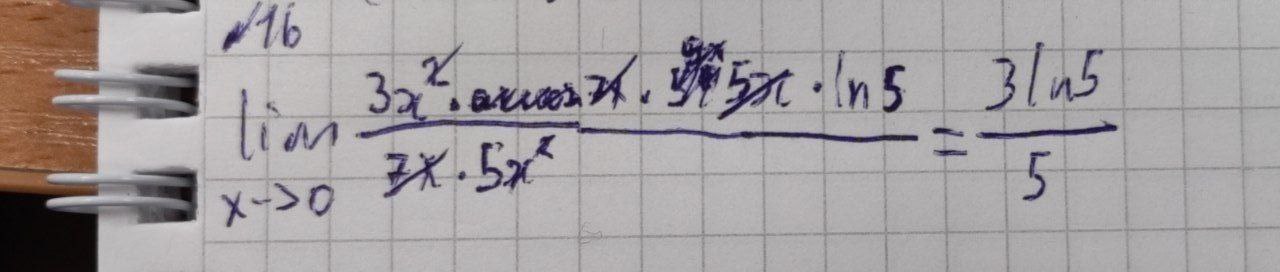 №16
lim x→0 3x² · x · 5x · ln5 / 7x · 5x² = 3ln5 / 5